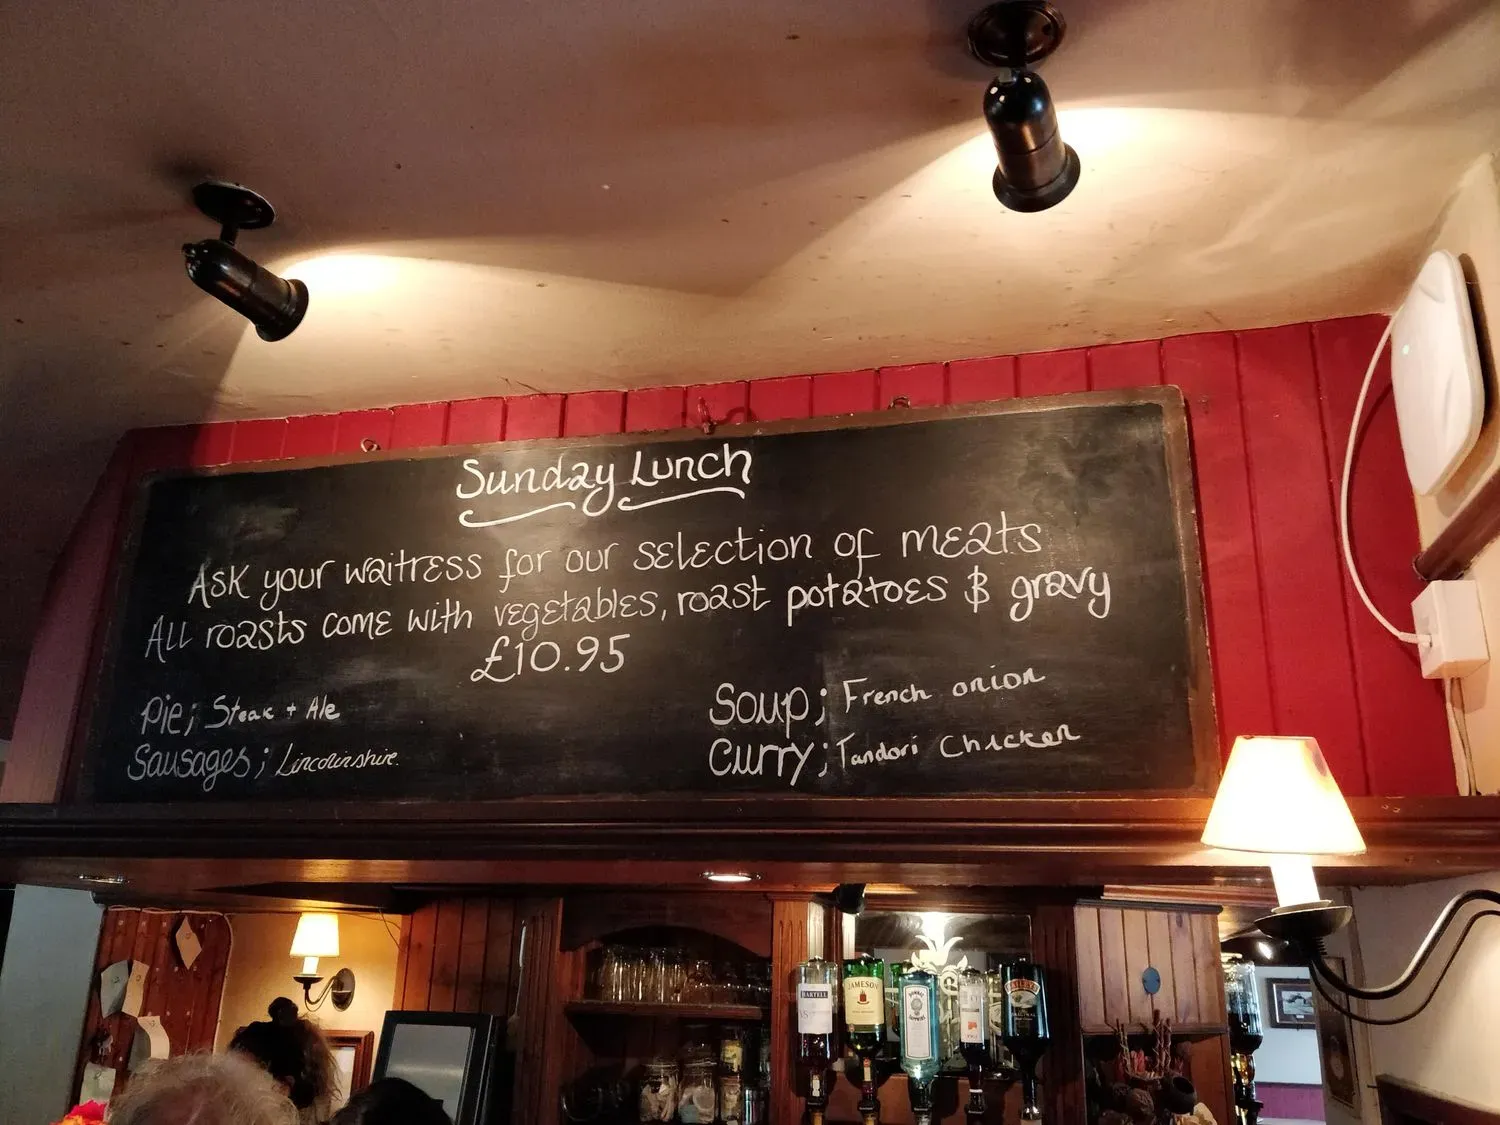 Sunday Lunch
Ask your waitress for our selection of meats
All roasts come with vegetables, roast potatoes & gravy
£10.95
Pie; Steak + Ale
Sausages; Lincolnshire.
Soup; French onion
Curry; Tandori Chicken
MARTELL
JAMESON
BOMBAY
SAPPHIRE
BAILEYS